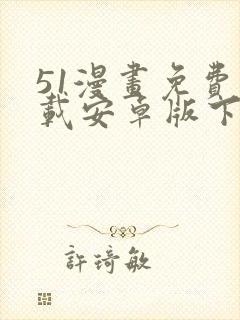 51漫畫免費
載安卓版下
許琦敏